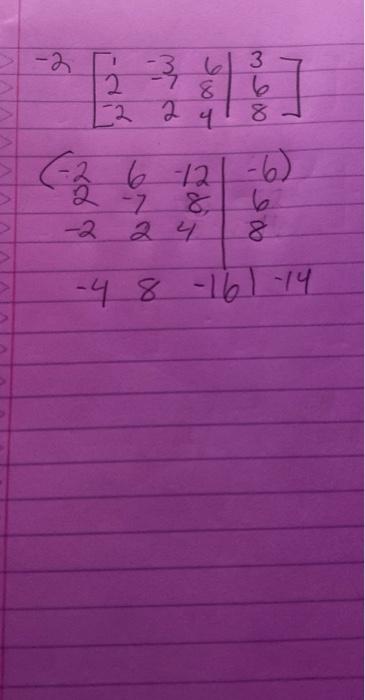 -2 [1 -3 6 | 3
2 -7 8 | 6
-2 2 4 | 8]
(-2 6 -12 | -6)
2 -7 8 | 6
-2 2 4 | 8
-4 8 -16 | -14